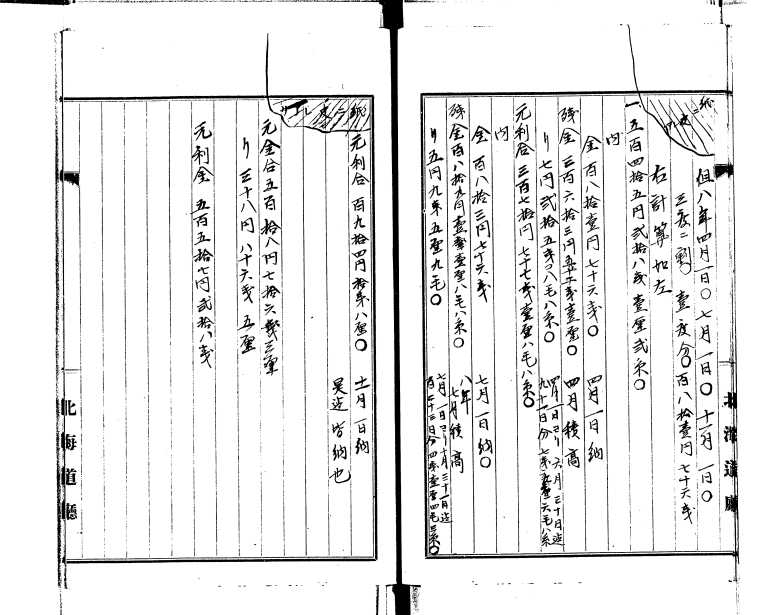 紙
但八年四月一日〇七月一日〇十一月一日〇
三度ニ割〇壹度分〇百八拾壹円七十六戋
右計算如左
一五百四拾五円弐拾八戋壹厘弐朱〇
内
金百八拾壹円七十六戋〇 四月一日納
残金三百六拾三円五十二戋壹厘〇 四月積高
り七円弐拾五戋〇八毛八朱〇 四月一日ヨリ六月三十日迄
九十一日分
元利合三百七拾円七十七戋壹厘八毛八朱〇
内
金百八拾三円七十六戋 七月一日納〇
残金百八拾九円壹戋壹厘八毛八朱〇 八年
七月積高
り五円九戋五厘九毛〇 七月一日ヨリ十月三十一日迄
百二十三日分
紙
元利合百九拾四円拾戋八厘〇 十一月一日納
皆納也
元金合五百拾八円七拾六戋三厘
り三十八円八十六戋五厘
元利金五百五拾七円弐拾八戋
北海道廳
北海道廳